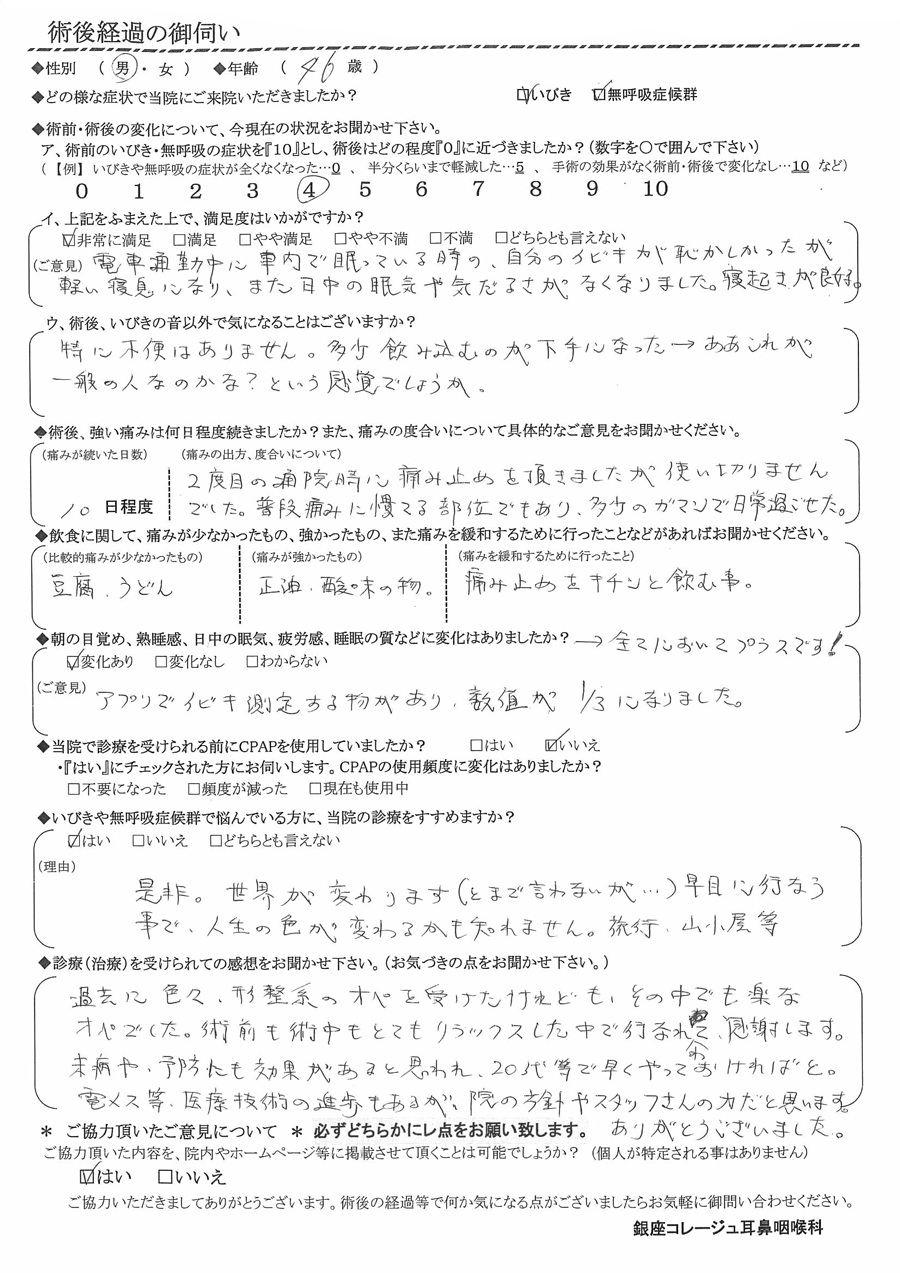 術後経過の御伺い
◆性別 （ 男 ・ 女 ） ◆年齢 （ 46 歳 ）
◆どの様な症状で当院にご来院いただきましたか？ ☑いびき ☑無呼吸症候群
◆術前・術後の変化について、今現在の状況をお聞かせ下さい。
ア、術前のいびき・無呼吸の症状を『10』とし、術後はどの程度『0』に近づきましたか？（数字を○で囲んで下さい）
（【例】 いびきや無呼吸の症状が全くなくなった…0 、 半分くらいまで軽減した…5 、 手術の効果がなく術前・術後で変化なし…10 など）
0 1 2 3 4 5 6 7 8 9 10
イ、上記をふまえた上で、満足度はいかがですか？
☑非常に満足 □満足 □やや満足 □やや不満 □不満 □どちらとも言えない
（ご意見） 電車通勤中に車内で眠っている時の、自分のイビキが恥かしかったが
軽い寝息になり、また日中の眠気や気だるさがなくなりました。寝起きが良好。
ウ、術後、いびきの音以外で気になることはございますか？
特に不便はありません。多少飲み込むのが下手になった→ああこれが
一般の人なのかな？という感覚でしょうか。
◆術後、強い痛みは何日程度続きましたか？また、痛みの度合いについて具体的なご意見をお聞かせください。
（痛みが続いた日数） （痛みの出方、度合いについて）
2度目の通院時に痛み止めを頂きましたが使い切りません
10 日程度 でした。普段痛みに慣てる部位でもあり、多少のガマンで日常過ごせた。
◆飲食に関して、痛みが少なかったもの、強かったもの、また痛みを緩和するために行ったことなどがあればお聞かせください。
（比較的痛みが少なかったもの） （痛みが強かったもの） （痛みを緩和するために行ったこと）
豆腐、うどん 正油・酸味の物。 痛み止めをキチンと飲む事。
◆朝の目覚め、熟睡感、日中の眠気、疲労感、睡眠の質などに変化はありましたか？ → 全てにおいてプラスです！
☑変化あり □変化なし □わからない
（ご意見） アプリでイビキ測定する物があり、数値が 1/3になりました。
◆当院で診療を受けられる前にCPAPを使用していましたか？ □はい ☑いいえ
・『はい』にチェックされた方にお伺いします。CPAPの使用頻度に変化はありましたか？
□不要になった □頻度が減った □現在も使用中
◆いびきや無呼吸症候群で悩んでいる方に、当院の診療をすすめますか？
☑はい □いいえ □どちらとも言えない
（理由）
是非。世界が変わります（とまで言わないが…）早目に行なう
事で、人生の色が変わるかも知れません。旅行、山小屋等
◆診療（治療）を受けられての感想をお聞かせ下さい。（お気づきの点をお聞かせ下さい。）
過去に色々、形整系のオペを受けたけれども、その中でも楽な
オペでした。術前も術中もとてもリラックスした中で行なわれて、感謝します。
未病や、予防にも効果があると思われ、20代等で早くやっておければと。
電メス等、医療技術の進歩もあるが、院の方針やスタッフさんの力だと思います。
＊ ご協力頂いたご意見について ＊ 必ずどちらかにレ点をお願い致します。 ありがとうございました。
ご協力頂いた内容を、院内やホームページ等に掲載させて頂くことは可能でしょうか？ （個人が特定される事はありません）
☑はい □いいえ
ご協力いただきましてありがとうございます。術後の経過等で何か気になる点がございましたらお気軽に御問い合わせください。
銀座コレージュ耳鼻咽喉科